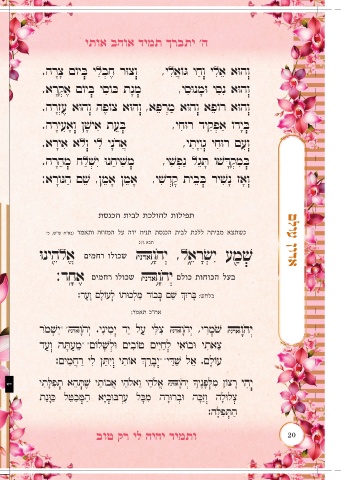 ה' יתברך תמיד אוהב אותי
וְהוּא אֵלִי וְחַי גּוֹאֲלִי, וְצוּר חֶבְלִי בְּיוֹם צָרָה,
וְהוּא נִסִּי וּמָנוּסִי, מְנָת כּוֹסִי בְּיוֹם אֶקְרָא,
וְהוּא רוֹפֵא וְהוּא מַרְפֵּא, וְהוּא צוֹפֶה וְהוּא עֶזְרָה,
בְּיָדוֹ אַפְקִיד רוּחִי, בְּעֵת אִישַׁן וְאָעִירָה,
וְעִם רוּחִי גְּוִיָּתִי, אֲדֹנָי לִי וְלֹא אִירָא,
בְּמִקְדָּשׁוֹ תָּגֵל נַפְשִׁי, מְשִׁיחֵנוּ יִשְׁלַח מְהֵרָה,
וְאָז נָשִׁיר בְּבֵית קָדְשִׁי, אָמֵן אָמֵן, שֵׁם הַנּוֹרָא:
תפילות להולכת לבית הכנסת
כשתצא מביתה ללכת לבית הכנסת תניח ידה על המזוזה ותאמר
שְׁמַע יִשְׂרָאֵל, יְהֹוָה שכולו רחמים אֱלֹהֵינוּ
בעל הכוחות כולם יְהֹוָה שכולו רחמים אֶחָד:
בלחש: בָּרוּךְ שֵׁם כְּבוֹד מַלְכוּתוֹ לְעוֹלָם וָעֶד:
אח"כ תאמר:
יְהֹוָה שֹׁמְרִי, יְהֹוָה צִלִּי עַל יַד יְמִינִי, יְהֹוָה יִשְׁמֹר
צֵאתִי וּבוֹאִי לְחַיִּים טוֹבִים וּלְשָׁלוֹם מֵעַתָּה וְעַד
עוֹלָם. אֵל שַׁדַּי יְבָרֵךְ אוֹתִי וְיִתֵּן לִי רַחֲמִים:
יְהִי רָצוֹן מִלְּפָנֶיךָ יְהֹוָה אֱלֹהַי וֵאלֹהֵי אֲבוֹתַי שֶׁתְּהֵא תְּפִלָּתִי
צְלוּלָה וְזַכָּה וּבְרוּרָה מִכָּל עִרְבּוּבְיָא הַמְבַטֵּל כַּוָּנַת
הַתְּפִלָּה:
ותמיד יהיה לי רק טוב
אדון עולם
20